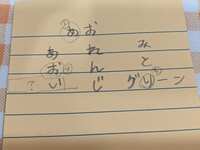 みと
グリーン
おれんじ
あ
あおい
?